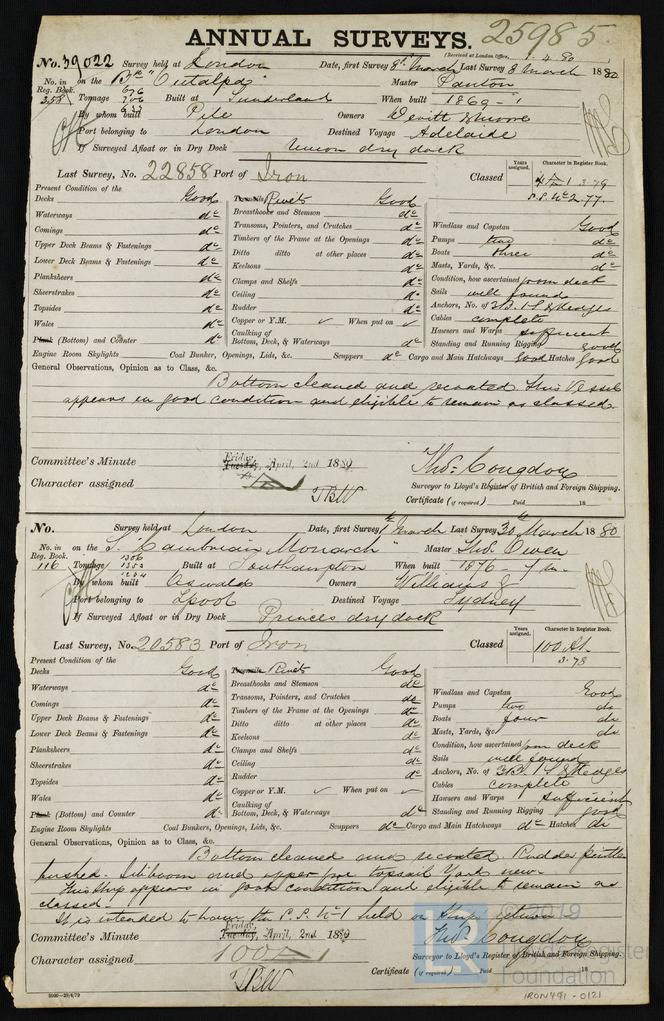 ANNUAL SURVEYS. 25985
(Received at London Office, 1.4.80)
No. 39022 Survey held at London Date, first Survey 8th March Last Survey 8 March 1880
No. in Reg. Book. 358 on the Bk "Cutalpa" Master Panton
Tonnage 676 706 Built at Sunderland When built 1869
By whom built Pile Owners Devitt & Moore
Port belonging to London Destined Voyage Adelaide
If Surveyed Afloat or in Dry Dock Union dry dock
Last Survey, No. 22858 Port of Iron Classed
Years assigned. Character in Register Book.
1 3.79
S.S. No 2.77.
Present Condition of the
Decks Good
Waterways do
Comings do
Upper Deck Beams & Fastenings do
Lower Deck Beams & Fastenings do
Planksheers do
Sheerstrakes do
Topsides do
Wales do
Plank (Bottom) and Counter do
Engine Room Skylights Coal Bunker, Openings, Lids, &c.
Treenails Rivets Good
Breasthooks and Stemson do
Transoms, Pointers, and Crutches do
Timbers of the Frame at the Openings do
Ditto ditto at other places do
Keelsons do
Clamps and Shelfs do
Ceiling do
Rudder do
Copper or Y.M. ✓ When put on ✓
Caulking of Bottom, Deck, & Waterways do
Scuppers do Cargo and Main Hatchways good Hatches Good
Windlass and Capstan Good
Pumps two do
Boats three do
Masts, Yards, &c. do
Condition, how ascertained from deck
Sails well found
Anchors, No. of 3B. 1S & 2 Kedges
Cables complete
Hawsers and Warps sufficient
Standing and Running Rigging good
General Observations, Opinion as to Class, &c.
Bottom cleaned and recoated. This Vessel
appears in good condition and eligible to remain as classed.
Committee's Minute Friday, Tuesday, April, 2nd 1880
Thos. Congdon
Character assigned
TBW
Surveyor to Lloyd's Register of British and Foreign Shipping.
Certificate (if required) Paid 18
No. Survey held at London Date, first Survey 1st March Last Survey 30th March 1880
No. in Reg. Book. 116 on the S. "Cambrian Monarch" Master Thos. Owen
Tonnage 1306 1352 1204 Built at Southampton When built 1876 - 7m.
By whom built Oswald Owners Williams &
Port belonging to Lpool Destined Voyage Sydney
If Surveyed Afloat or in Dry Dock Princes dry dock
Last Survey, No. 20583 Port of Iron Classed
Years assigned. Character in Register Book.
100 A1.
3.78
Present Condition of the
Decks Good
Waterways do
Comings do
Upper Deck Beams & Fastenings do
Lower Deck Beams & Fastenings do
Planksheers do
Sheerstrakes do
Topsides do
Wales do
Plank (Bottom) and Counter do
Engine Room Skylights Coal Bunkers, Openings, Lids, &c.
Treenails Rivets Good
Breasthooks and Stemson do
Transoms, Pointers, and Crutches do
Timbers of the Frame at the Openings do
Ditto ditto at other places do
Keelsons do
Clamps and Shelfs do
Ceiling do
Rudder do
Copper or Y.M. ✓ When put on ✓
Caulking of Bottom, Deck, & Waterways do
Scuppers do Cargo and Main Hatchways do Hatches do
Windlass and Capstan Good
Pumps two do
Boats four do
Masts, Yards, &c do
Condition, how ascertained from deck
Sails well found
Anchors, No. of 3B. 1S & 2 Kedges
Cables complete
Hawsers and Warps sufficient
Standing and Running Rigging good
General Observations, Opinion as to Class, &c.
Bottom cleaned and recoated. Rudder pintles
bushed. Jibboom and upper fore topsail Yard new.
This ship appears in good condition and eligible to remain as
classed.
It is intended to have the S.S. No 1 held on Ships return
Committee's Minute Friday, Tuesday, April, 2nd 1880
Thos. Congdon
Character assigned 100A1
TBW
Surveyor to Lloyd's Register of British and Foreign Shipping.
Certificate (if required) Paid 18
5000—29/4/79
© 2019
Lloyd's Register
Foundation
IRON491-0121